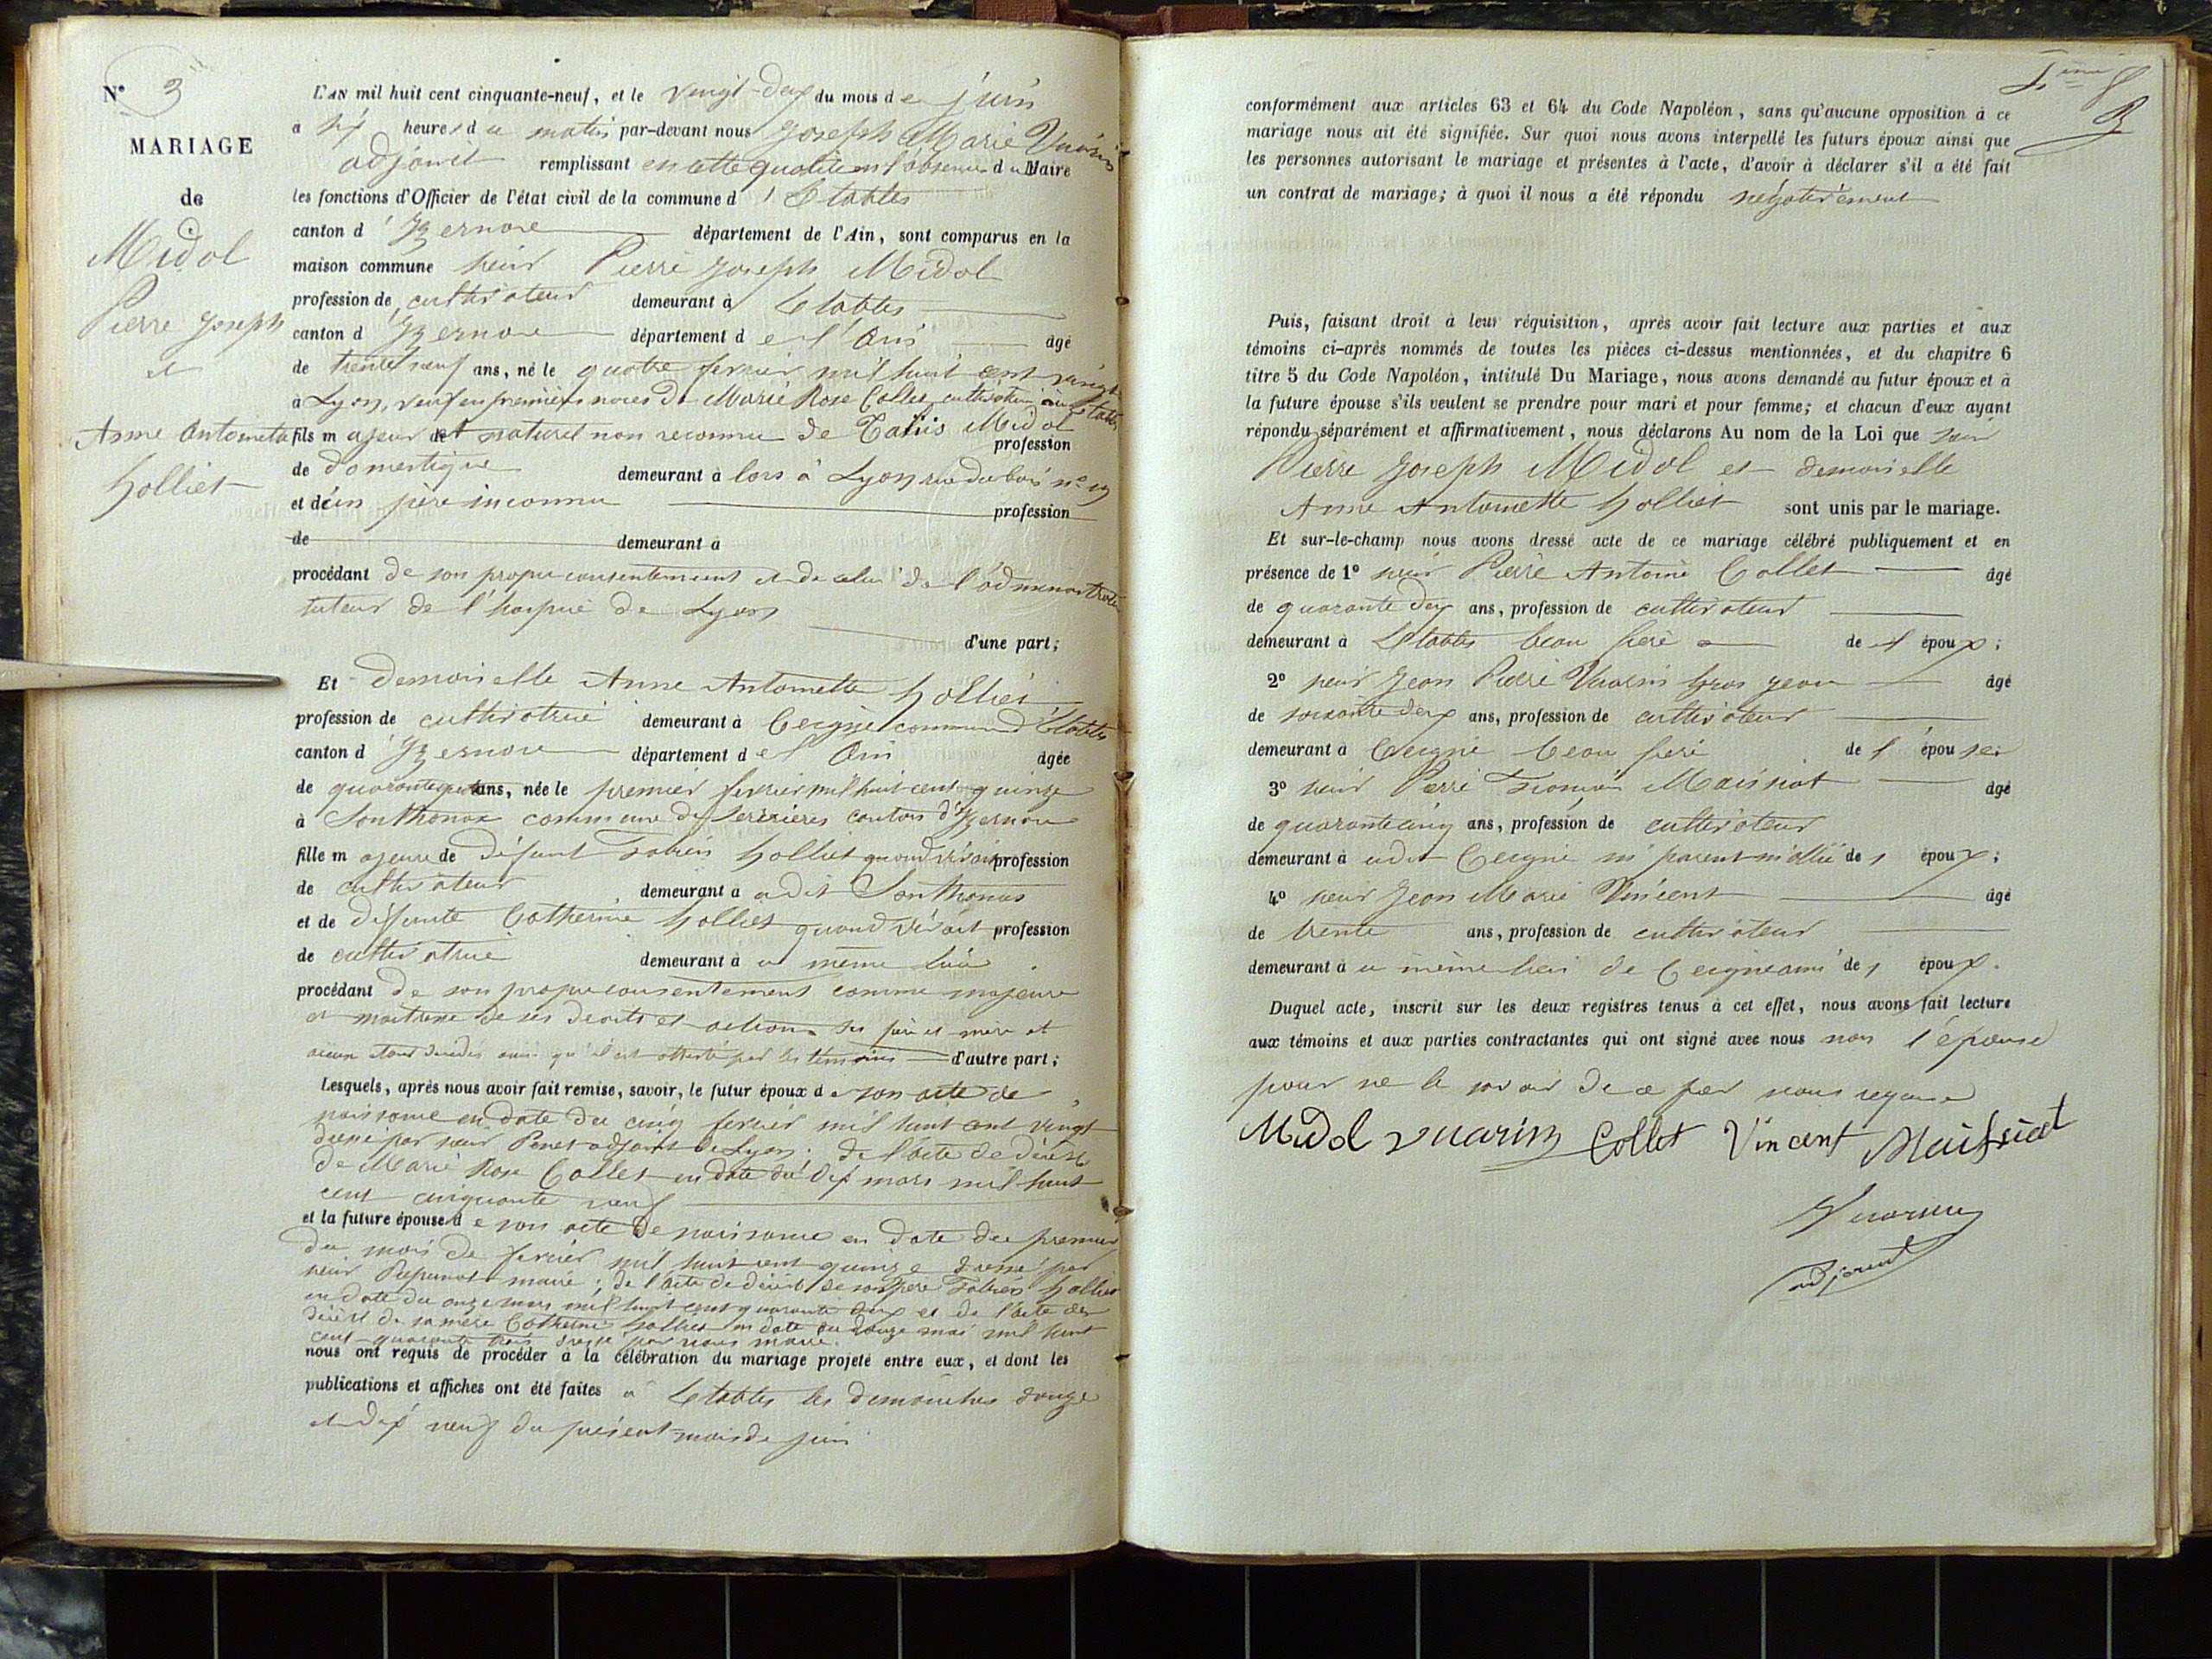 N° 3
MARIAGE
de
Midol
Pierre Joseph
et
Anne Antoinette
Holliet
L'AN mil huit cent cinquante-neuf, et le vingt-deux du mois de juin
à six heures du matin par-devant nous Joseph Marie Vuarin
adjoint remplissant en cette qualité en l'absence du Maire
les fonctions d'Officier de l'état civil de la commune d'Etables
canton d'Izernore département de l'Ain, sont comparus en la
maison commune sieur Pierre Joseph Midol
profession de cultivateur demeurant à Etables
canton d'Izernore département de l'Ain âgé
de trente neuf ans, né le quatre fevrier mil huit cent vingt
à Lyon, veuf en premières noces de Marie Rose Collet, cultivatrice Etables
fils majeur et naturel non reconnu de Midol profession
de domestique demeurant à lors à Lyon rue du bois n°
et d'un père inconnu profession
de demeurant à
procédant de son propre consentement et de celui de l'administrateur
tuteur de l'hospice de Lyon
d'une part;
Et demoiselle Anne Antoinette Holliet
profession de cultivatrice demeurant à Ceignes commune d'Etables
canton d'Izernore département de l'Ain âgée
de quarante quatre ans, née le premier fevrier mil huit cent quinze
à Sonthonax commune de Serrières canton d'Izernore
fille majeure de défunt Fabien Holliet quand vivait profession
de cultivateur demeurant à udit Sonthonax
et de défunte Catherine Holliet quand vivait profession
de cultivatrice demeurant à u même lieu
procédant de son propre consentement comme majeure
et maitresse de ses droits et actions ses père et mère et
aieux étant décédés ainsi qu'il est attesté par les témoins d'autre part;
Lesquels, après nous avoir fait remise, savoir, le futur époux de son acte de
naissance en date du cinq fevrier mil huit cent vingt
dressé par sieur adjoint de Lyon; de l'acte de décès
de Marie Rose Collet en date du dix mars mil huit
cent cinquante neuf
et la future épouse de son acte de naissance en date du premier
du mois de fevrier mil huit cent quinze dressé par
sieur maire; de l'acte de décès de son père Fabien Holliet
en date du onze mars mil huit cent quarante deux et de l'acte de
décès de sa mère Catherine Hollies en date du douze mai mil huit
cent quarante trois dressé par nous maire.
nous ont requis de procéder à la célébration du mariage projeté entre eux, et dont les
publications et affiches ont été faites à Etables les dimanches douze
et dix neuf du présent mois de juin
conformément aux articles 63 et 64 du Code Napoléon, sans qu'aucune opposition à ce
mariage nous ait été signifiée. Sur quoi nous avons interpellé les futurs époux ainsi que
les personnes autorisant le mariage et présentes à l'acte, d'avoir à déclarer s'il a été fait
un contrat de mariage; à quoi il nous a été répondu négativement
Puis, faisant droit à leur réquisition, après avoir fait lecture aux parties et aux
témoins ci-après nommés de toutes les pièces ci-dessus mentionnées, et du chapitre 6
titre 5 du Code Napoléon, intitulé Du Mariage, nous avons demandé au futur époux et à
la future épouse s'ils veulent se prendre pour mari et pour femme; et chacun d'eux ayant
répondu séparément et affirmativement, nous déclarons Au nom de la Loi que sieur
Pierre Joseph Midol et demoiselle
Anne Antoinette Holliet sont unis par le mariage.
Et sur-le-champ nous avons dressé acte de ce mariage célébré publiquement et en
présence de 1° sieur Pierre Antoine Collet âgé
de quarante deux ans, profession de cultivateur
demeurant à Etables beau frère de l'époux;
2° sieur Jean Pierre Vuarin Gros Jean âgé
de soixante deux ans, profession de cultivateur
demeurant à Ceignes beau frère de l'épouse;
3° sieur Pierre François Maissiat âgé
de quarante cinq ans, profession de cultivateur
demeurant à udit Ceignes ni parent ni allié de l'époux;
4° sieur Jean Marie Vincent âgé
de trente ans, profession de cultivateur
demeurant à u même lieu de Ceignes ami de l'époux.
Duquel acte, inscrit sur les deux registres tenus à cet effet, nous avons fait lecture
aux témoins et aux parties contractantes qui ont signé avec nous non l'épouse
pour ne le savoir de ce par nous requise
Midol Vuarin Collet Vincent Maissiat
Vuarin
adjoint